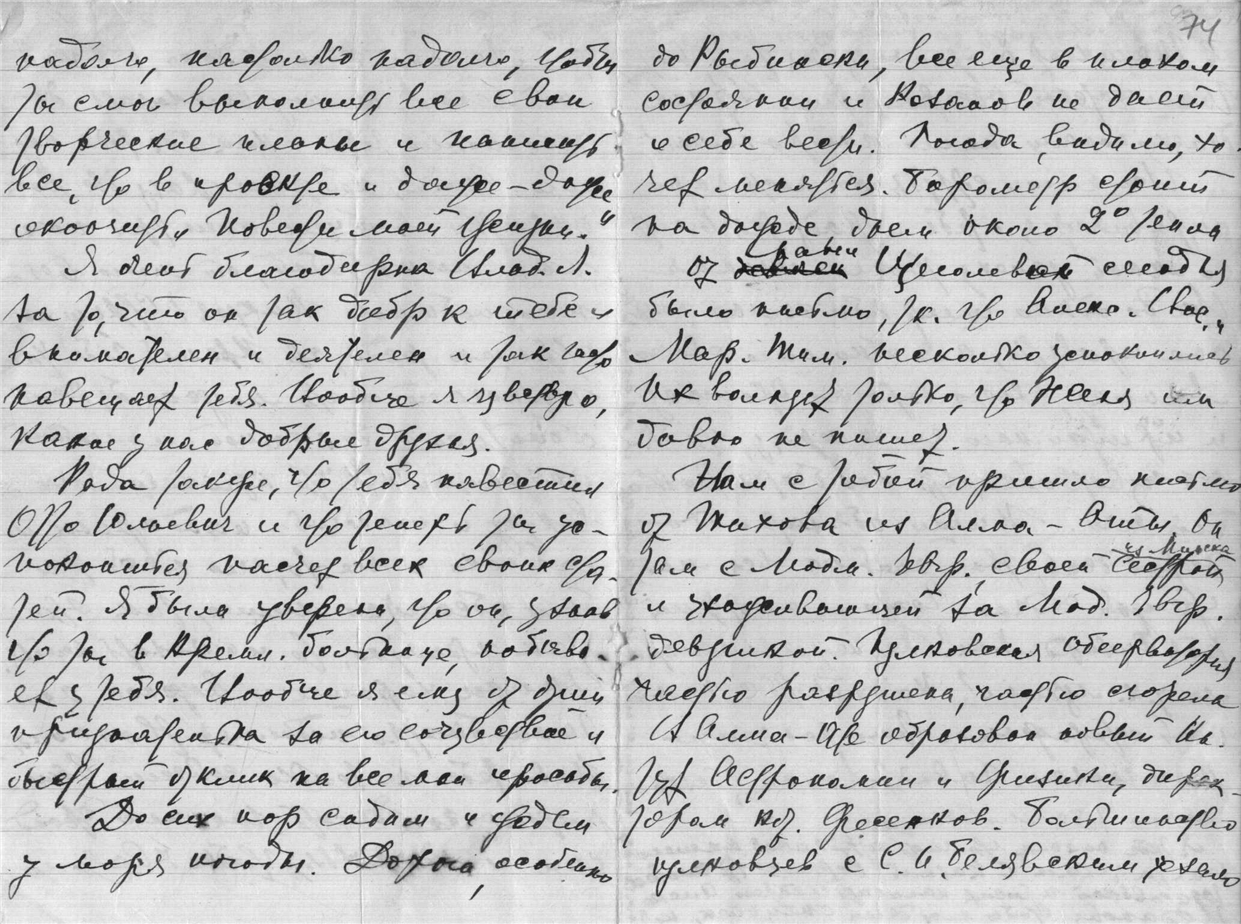 надолго, настолько надолго, чтобы
ты смог выполнить все свои
творческие планы и написать
все, что в проекте и даже – даже
окончить „Повести моей жизни."
Я очень благодарна Влад. А.
за то, что он так добр к тебе и
внимателен и деятелен и так часто
навещает тебя. Вообще я чувствую,
какие у нас добрые друзья.
Рада также, что тебя навестил
Отто Юльевич и что теперь ты ус-
покоишься насчет всех своих ста-
тей. Я была уверена, что он, узнав
что ты в Кремл. больнице, побыва-
ет у тебя. Вообще я ему от души
признательна за его сочувствие и
быстрый отклик на все мои просьбы.
До сих пор сидим и ждем
у моря погоды. Дорога, особенно
74
до Рыбинска, все еще в плохом
состоянии и не дает
о себе вести. Погода, видимо, хо-
чет меняться. Барометр стоит
на дожде, днем около 2° тепла
от Щеголевой сегодня
было письмо, т.к. что Алекс. и
Мар. Тим. несколько успокоились
их волнует только, что Женя им
давно не пишет.
Нам с тобой пришло письмо
от Тихова из Алма-Аты. Он
там с Людм. Евгр. своей сестрой из Минска
и ухаживающей за Люд. Евгр.
девушкой. Пулковская обсерватория
частью разрушена, частью сгорела
В Алма-Ате образован новый Ин-
тут Астрономии и Физики, дирек-
тором ктр. Фесенков. Большинство
пулковцев с С. И. Белявским уехало